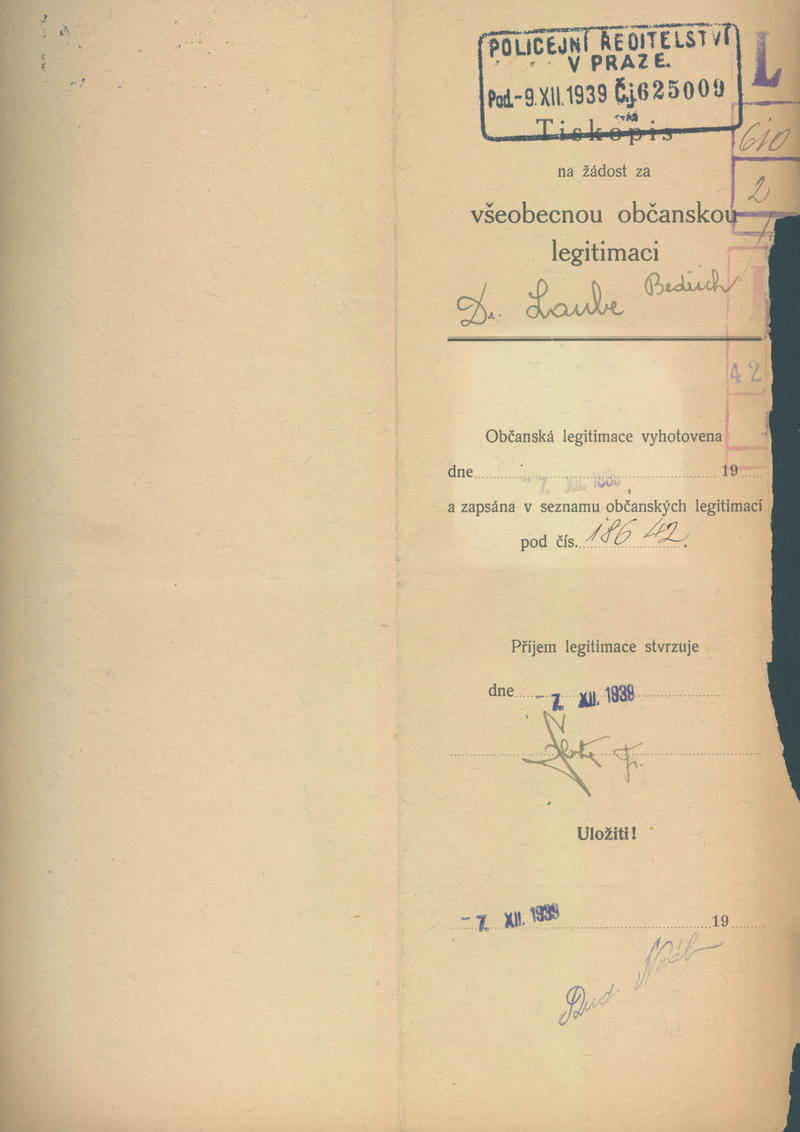 POLICEJNÍ ŘEDITELSTVÍ
V PRAZE.
Pod.-9.XII.1939 Č.j.625009
L
Tiskopis
610
na žádost za
2
všeobecnou občanskou
legitimaci
Dr. Laube Bedřich
42
Občanská legitimace vyhotovena
dne - 7. XII. 19
a zapsána v seznamu občanských legitimací
pod čís. 18642.
Příjem legitimace stvrzuje
dne - 7. XII. 1939
Uložiti!
- 7. XII. 1939 19
Novák